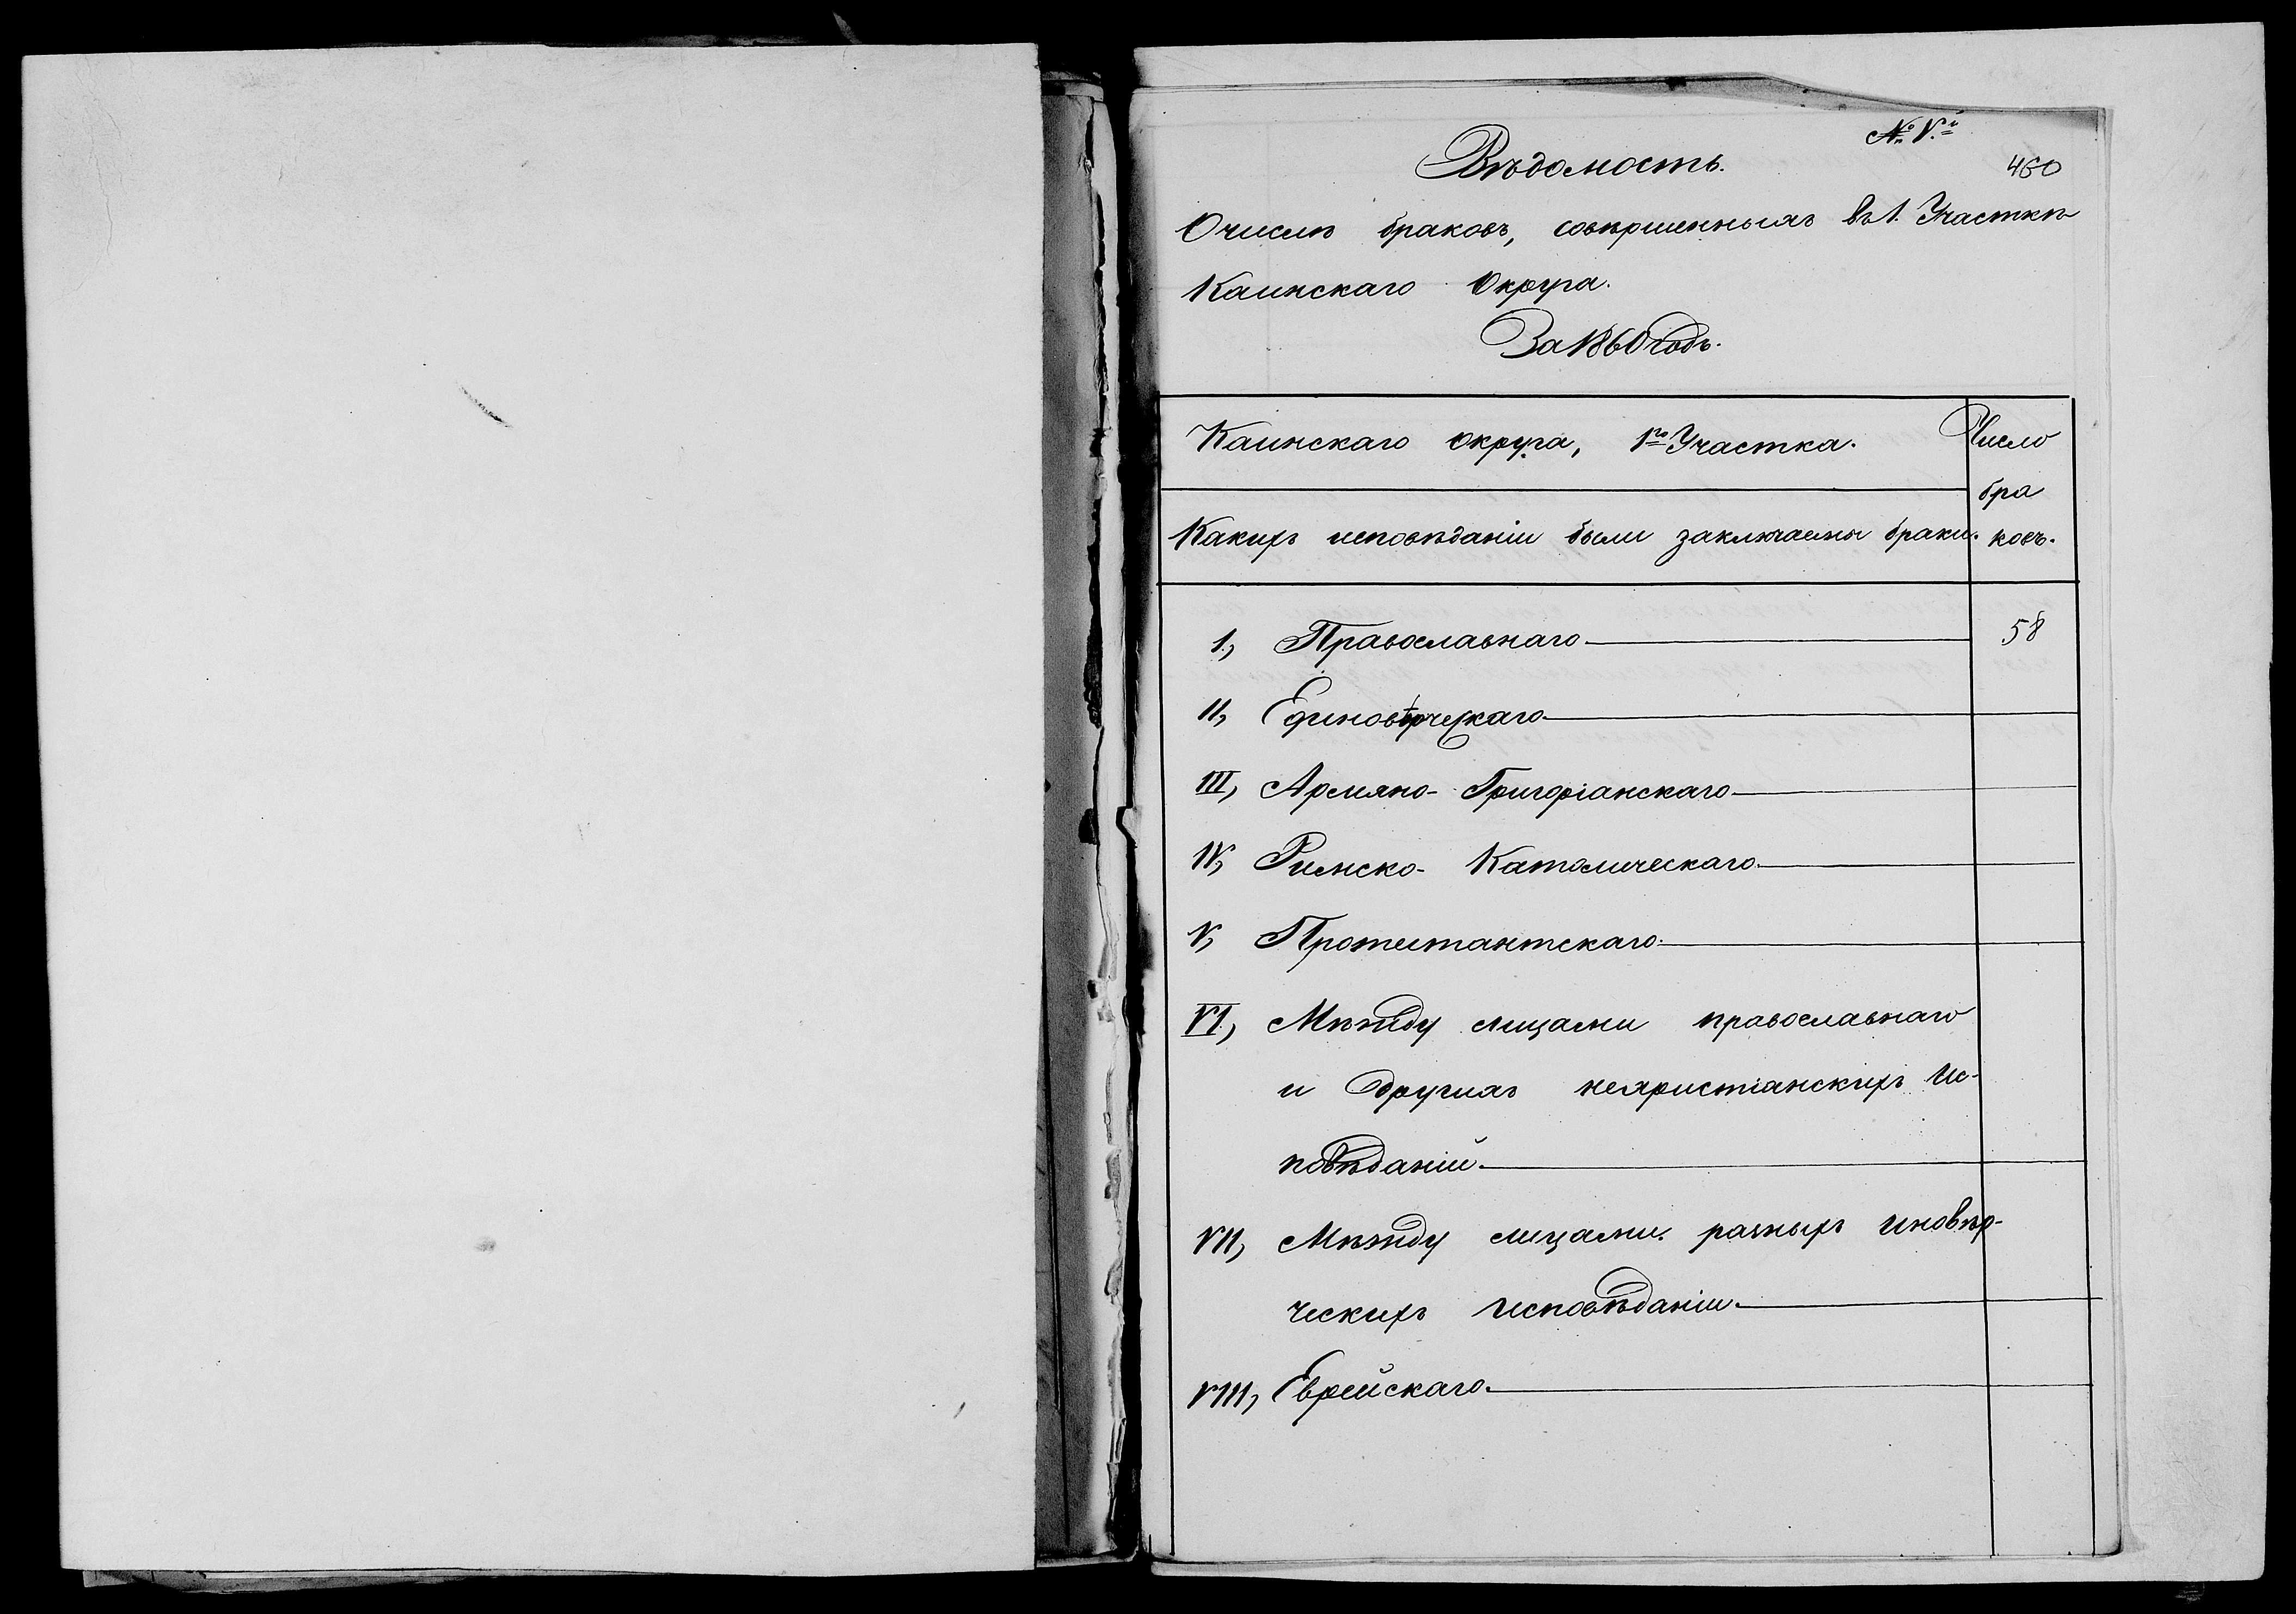 № V.й
460
Вѣдомость.
О числѣ браковъ, совѣршенныхъ въ 1. Участкѣ
Каинскаго Округа.
За 1860 годъ.
Каинскаго округа, 1го Участка.
Число
бра
ковъ.
Какихъ исповѣданіи были заключаемы браки.
I, Православнаго 58
II, Единовѣрческаго
III, Армяно-Григоріанскаго
IV, Римско-Католическаго
V, Протестантскаго
VI, Мѣжду лицами православнаго
и другихъ нехристіанскихъ Ис-
повѣданій
VII, Мѣжду лицами разныхъ иновѣр-
ческихъ исповѣданіи
VIII, Еврейскаго